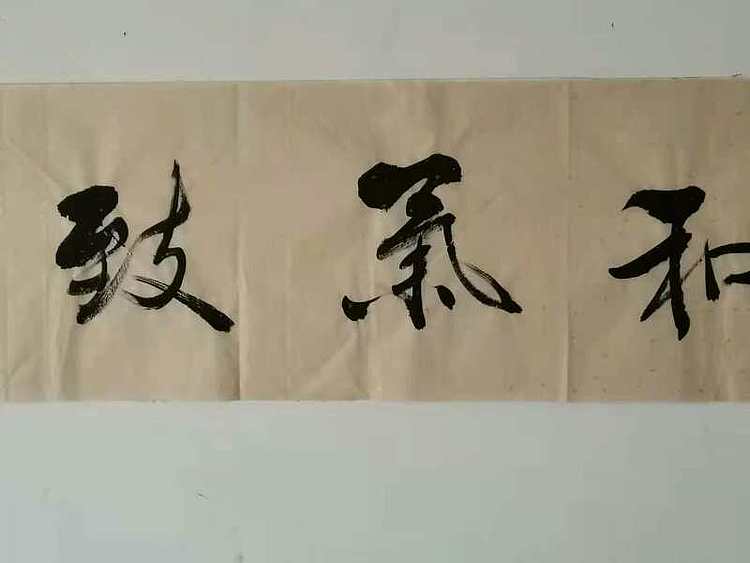 和氣致